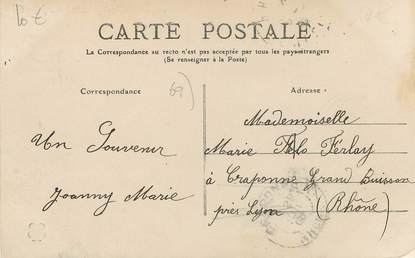 10 €
CARTE POSTALE
La Correspondance au recto n'est pas acceptée par tous les pays étrangers
(Se renseigner à la Poste)
Correspondance
69)
Adresse
Un Souvenir
Joanny Marie
Mademoiselle
Marie Félo Ferlay
à Craponne Grand Buisson
près Lyon (Rhône)